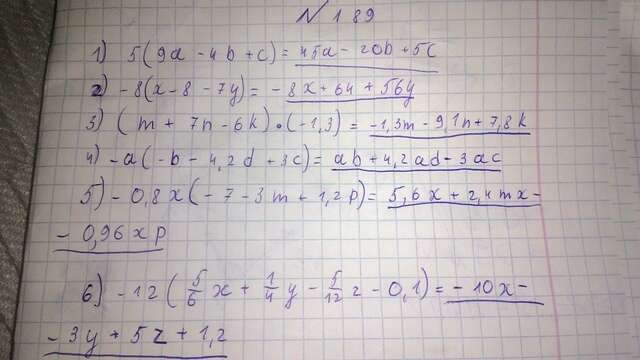 № 189
1) 5(9a - 4b + c) = 45a - 20b + 5c
2) -8(x - 8 - 7y) = -8x + 64 + 56y
3) (m + 7n - 6k) · (-1,3) = -1,3m - 9,1n + 7,8k
4) -a(-b - 4,2d + 3c) = ab + 4,2ad - 3ac
5) -0,8x(-7 - 3m + 1,2p) = 5,6x + 2,4mx -
- 0,96xp
6) -12(5/6 x + 1/4 y - 5/12 z - 0,1) = -10x -
- 3y + 5z + 1,2